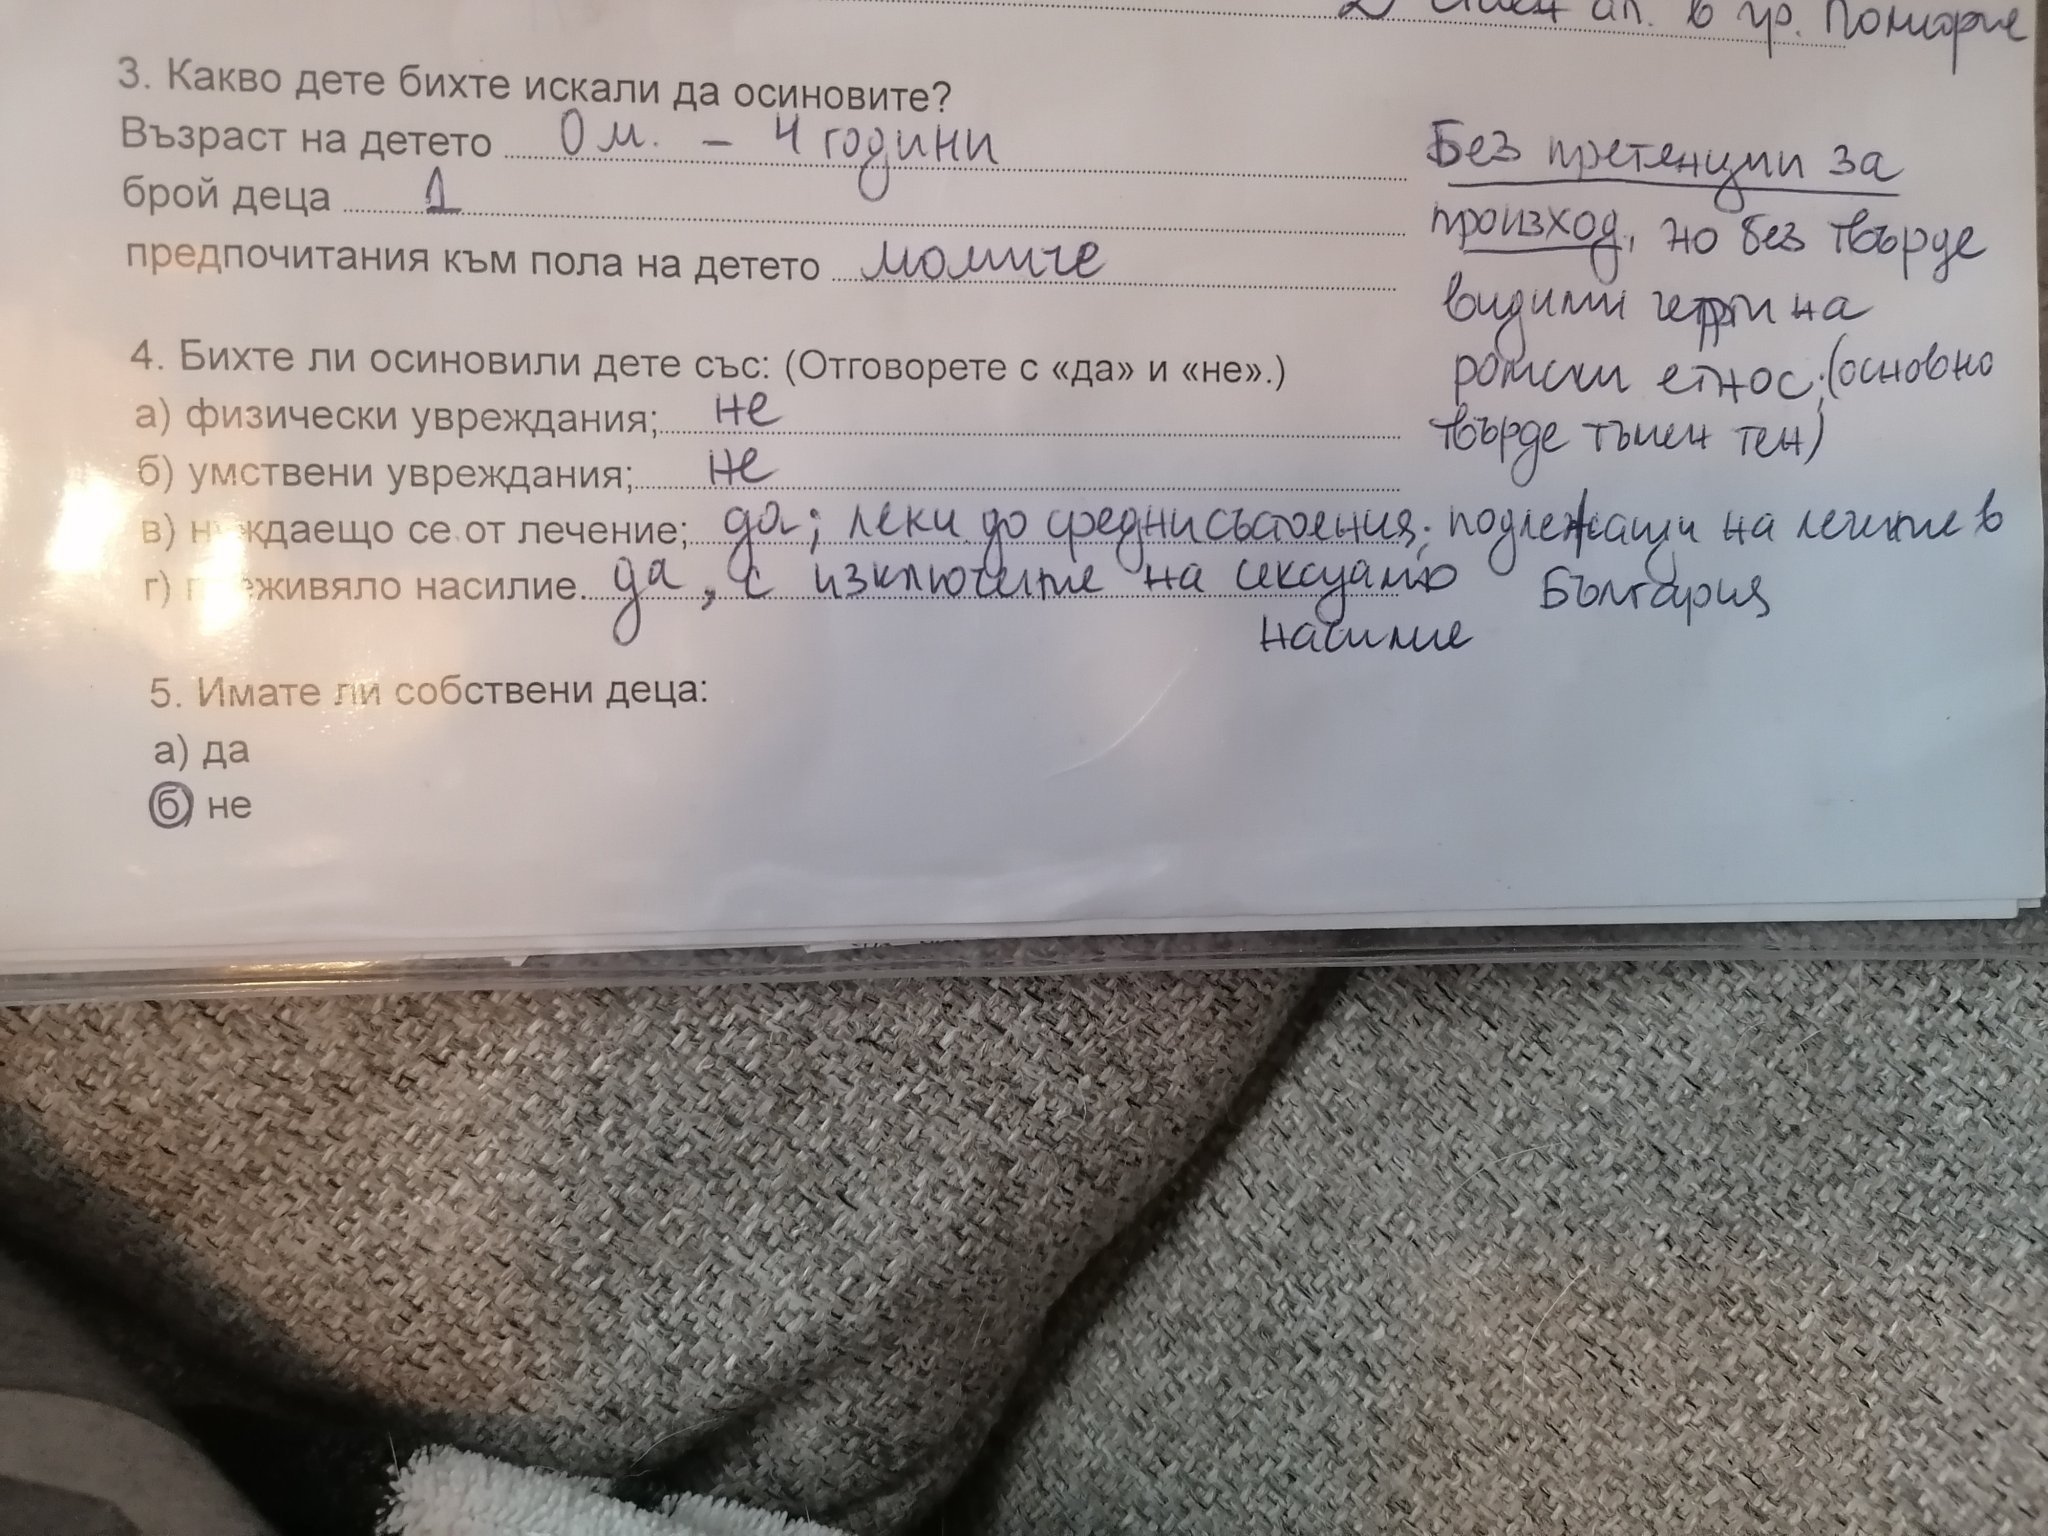 2 стаен ап. в гр. Поморие
3. Какво дете бихте искали да осиновите?
Възраст на детето 0 м. – 4 години
брой деца 1
предпочитания към пола на детето момиче
Без претенции за
произход, но без твърде
видими черти на
ромски етнос (основно
твърде тъмен тен)
4. Бихте ли осиновили дете със: (Отговорете с «да» и «не».)
а) физически увреждания; не
б) умствени увреждания; не
в) нуждаещо се от лечение; да; леки до средни състояния; подлежащи на лечение в
България
г) преживяло насилие. да, с изключение на сексуално
насилие
5. Имате ли собствени деца:
а) да
б) не